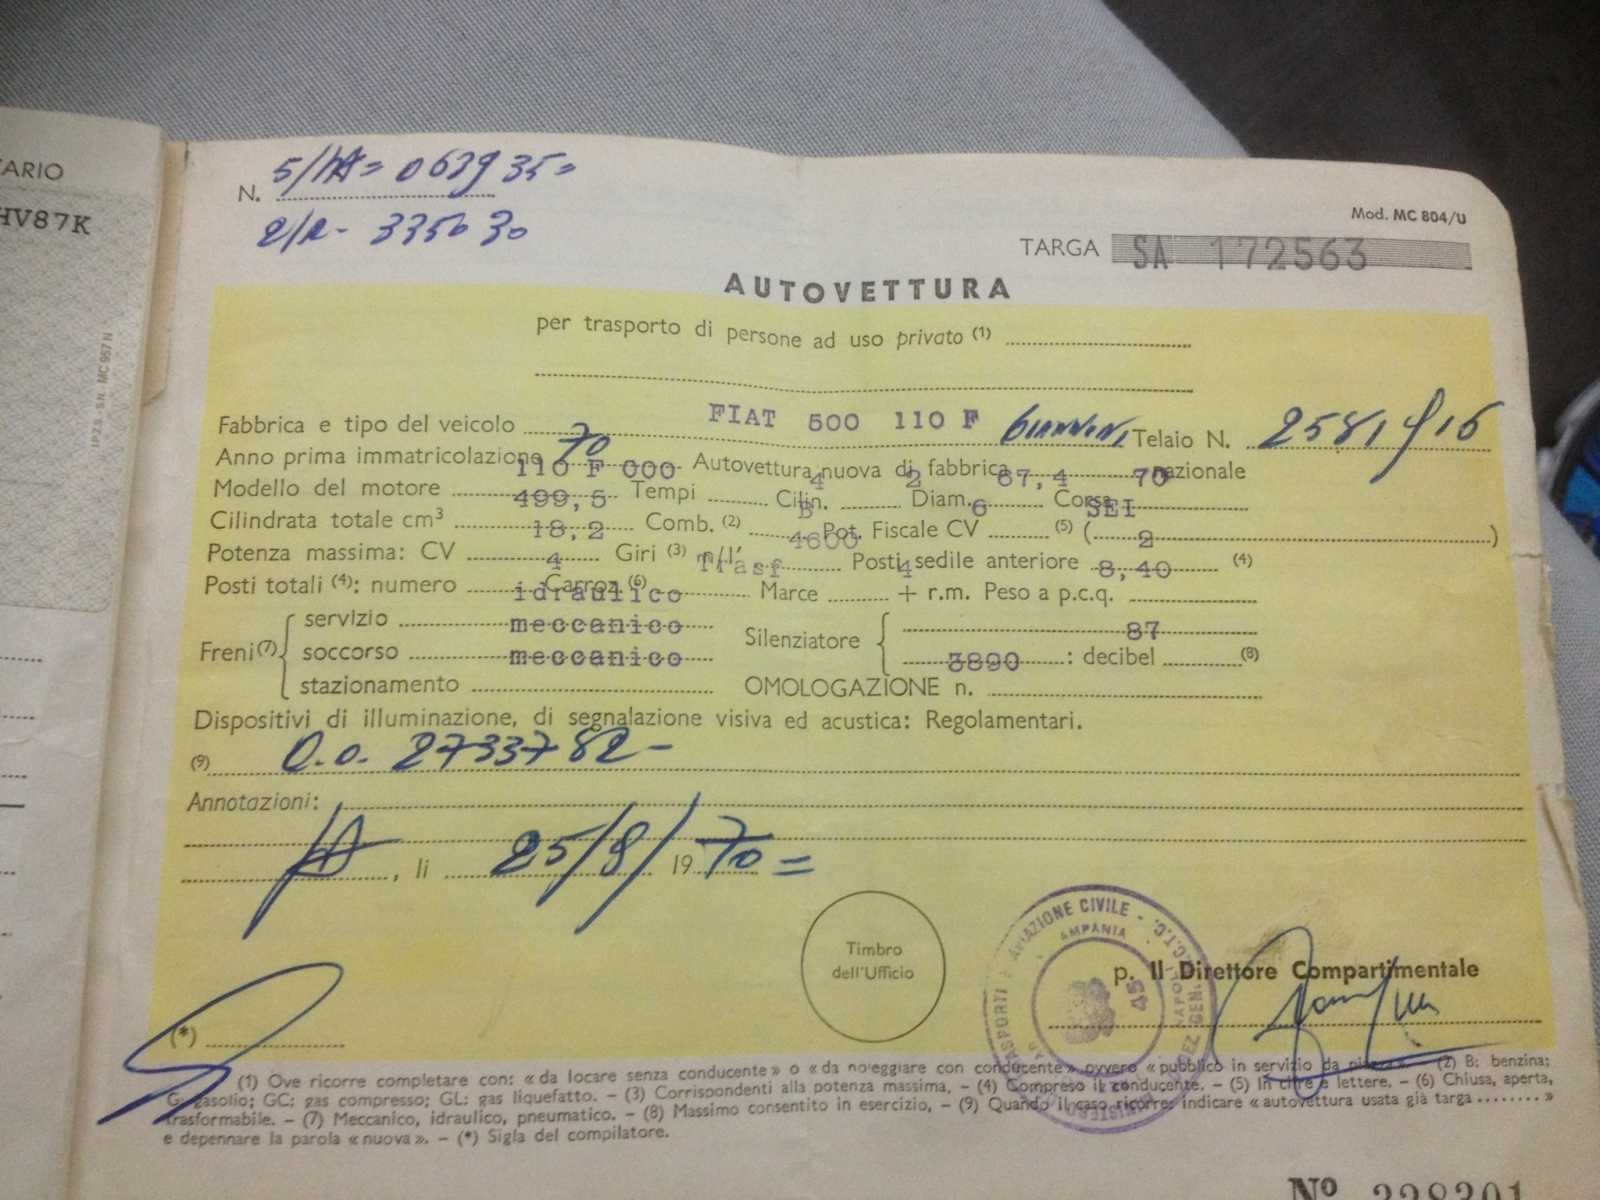 ARIO
HV87K
I.P.Z.S. S.N. MC 957 N
N. 5/ 063935=
2/R- 335030
Mod. MC 804/U
TARGA SA 172563
AUTOVETTURA
per trasporto di persone ad uso privato (1)
Fabbrica e tipo del veicolo FIAT 500 110 F Giannini, Telaio N. 2581916
Anno prima immatricolazione 70 Autovettura nuova di fabbrica nazionale
Modello del motore 110 F 000 Tempi 4 Cilin. 2 Diam. 67,4 Corsa 70
Cilindrata totale cm³ 499,5 Comb. (2) B Pot. Fiscale CV 6 (5) ( SEI )
Potenza massima: CV 18,2 Giri (3) n/l' 4600 Posti sedile anteriore 2 (4)
Posti totali (4): numero 4 Carroz. (6) Trasf Marce 4 + r.m. Peso a p.c.q. 8,40
Freni (7) servizio idraulico
soccorso meccanico Silenziatore
stazionamento meccanico : decibel 87 (8)
OMOLOGAZIONE n. 3890
Dispositivi di illuminazione, di segnalazione visiva ed acustica: Regolamentari.
(9) O.O. 2733782-
Annotazioni:
, li 25/8/1970=
Timbro
dell'Ufficio
AVIAZIONE CIVILE
p. Il Direttore Compartimentale
(*)
(1) Ove ricorre completare con: « da locare senza conducente » o « da noleggiare con conducente » ovvero « pubblico in servizio da piazza ». (2) B: benzina;
G: gasolio; GC: gas compresso; GL: gas liquefatto. – (3) Corrispondenti alla potenza massima. – (4) Compreso il conducente. – (5) In cifre e lettere. – (6) Chiusa, aperta,
trasformabile. – (7) Meccanico, idraulico, pneumatico. – (8) Massimo consentito in esercizio, – (9) Quando il caso ricorre: indicare « autovettura usata già targa ........ »
e depennare la parola « nuova ». – (*) Sigla del compilatore.
Nº 328301